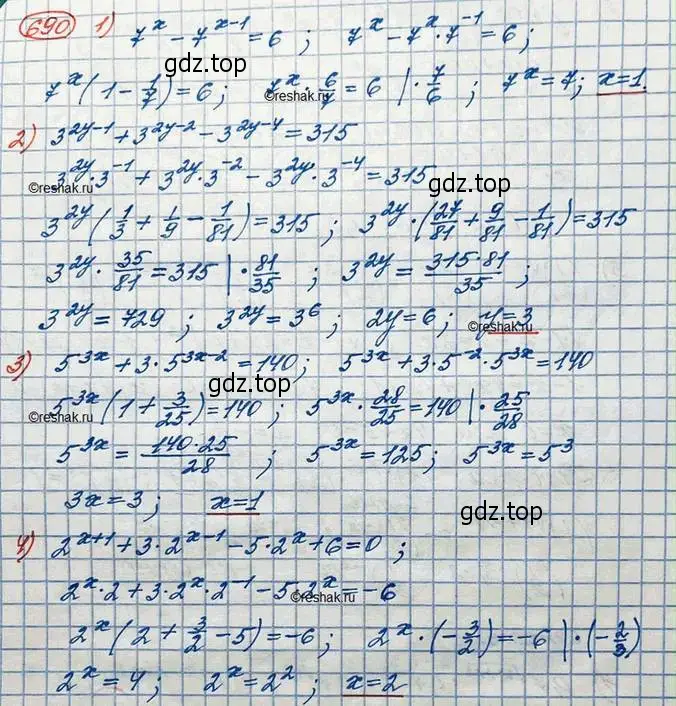 690 1) 7^x - 7^{x-1} = 6 ; 7^x - 7^x · 7^{-1} = 6 ;
gdz.top
7^x (1 - 1/7) = 6 ; 7^x · 6/7 = 6 | · 7/6 ; 7^x = 7 ; x = 1.
©reshak.ru
2) 3^{2y-1} + 3^{2y-2} - 3^{2y-4} = 315
3^{2y} · 3^{-1} + 3^{2y} · 3^{-2} - 3^{2y} · 3^{-4} = 315
©reshak.ru gdz.top
3^{2y} (1/3 + 1/9 - 1/81) = 315 ; 3^{2y} · (27/81 + 9/81 - 1/81) = 315
3^{2y} · 35/81 = 315 | · 81/35 ; 3^{2y} = 315·81/35 ;
3^{2y} = 729 ; 3^{2y} = 3^6 ; 2y = 6 ; y = 3
©reshak.ru
3) 5^{3x} + 3 · 5^{3x-2} = 140 ; 5^{3x} + 3 · 5^{-2} · 5^{3x} = 140
gdz.top
5^{3x} (1 + 3/25) = 140 ; 5^{3x} · 28/25 = 140 | · 25/28
©reshak.ru
5^{3x} = 140·25/28 ; 5^{3x} = 125 ; 5^{3x} = 5^3
3x = 3 ; x = 1
gdz.top
4) 2^{x+1} + 3 · 2^{x-1} - 5 · 2^x + 6 = 0 ;
2^x · 2 + 3 · 2^x · 2^{-1} - 5 · 2^x = -6
©reshak.ru
2^x (2 + 3/2 - 5) = -6 ; 2^x · (-3/2) = -6 | · (-2/3)
2^x = 4 ; 2^x = 2^2 ; x = 2